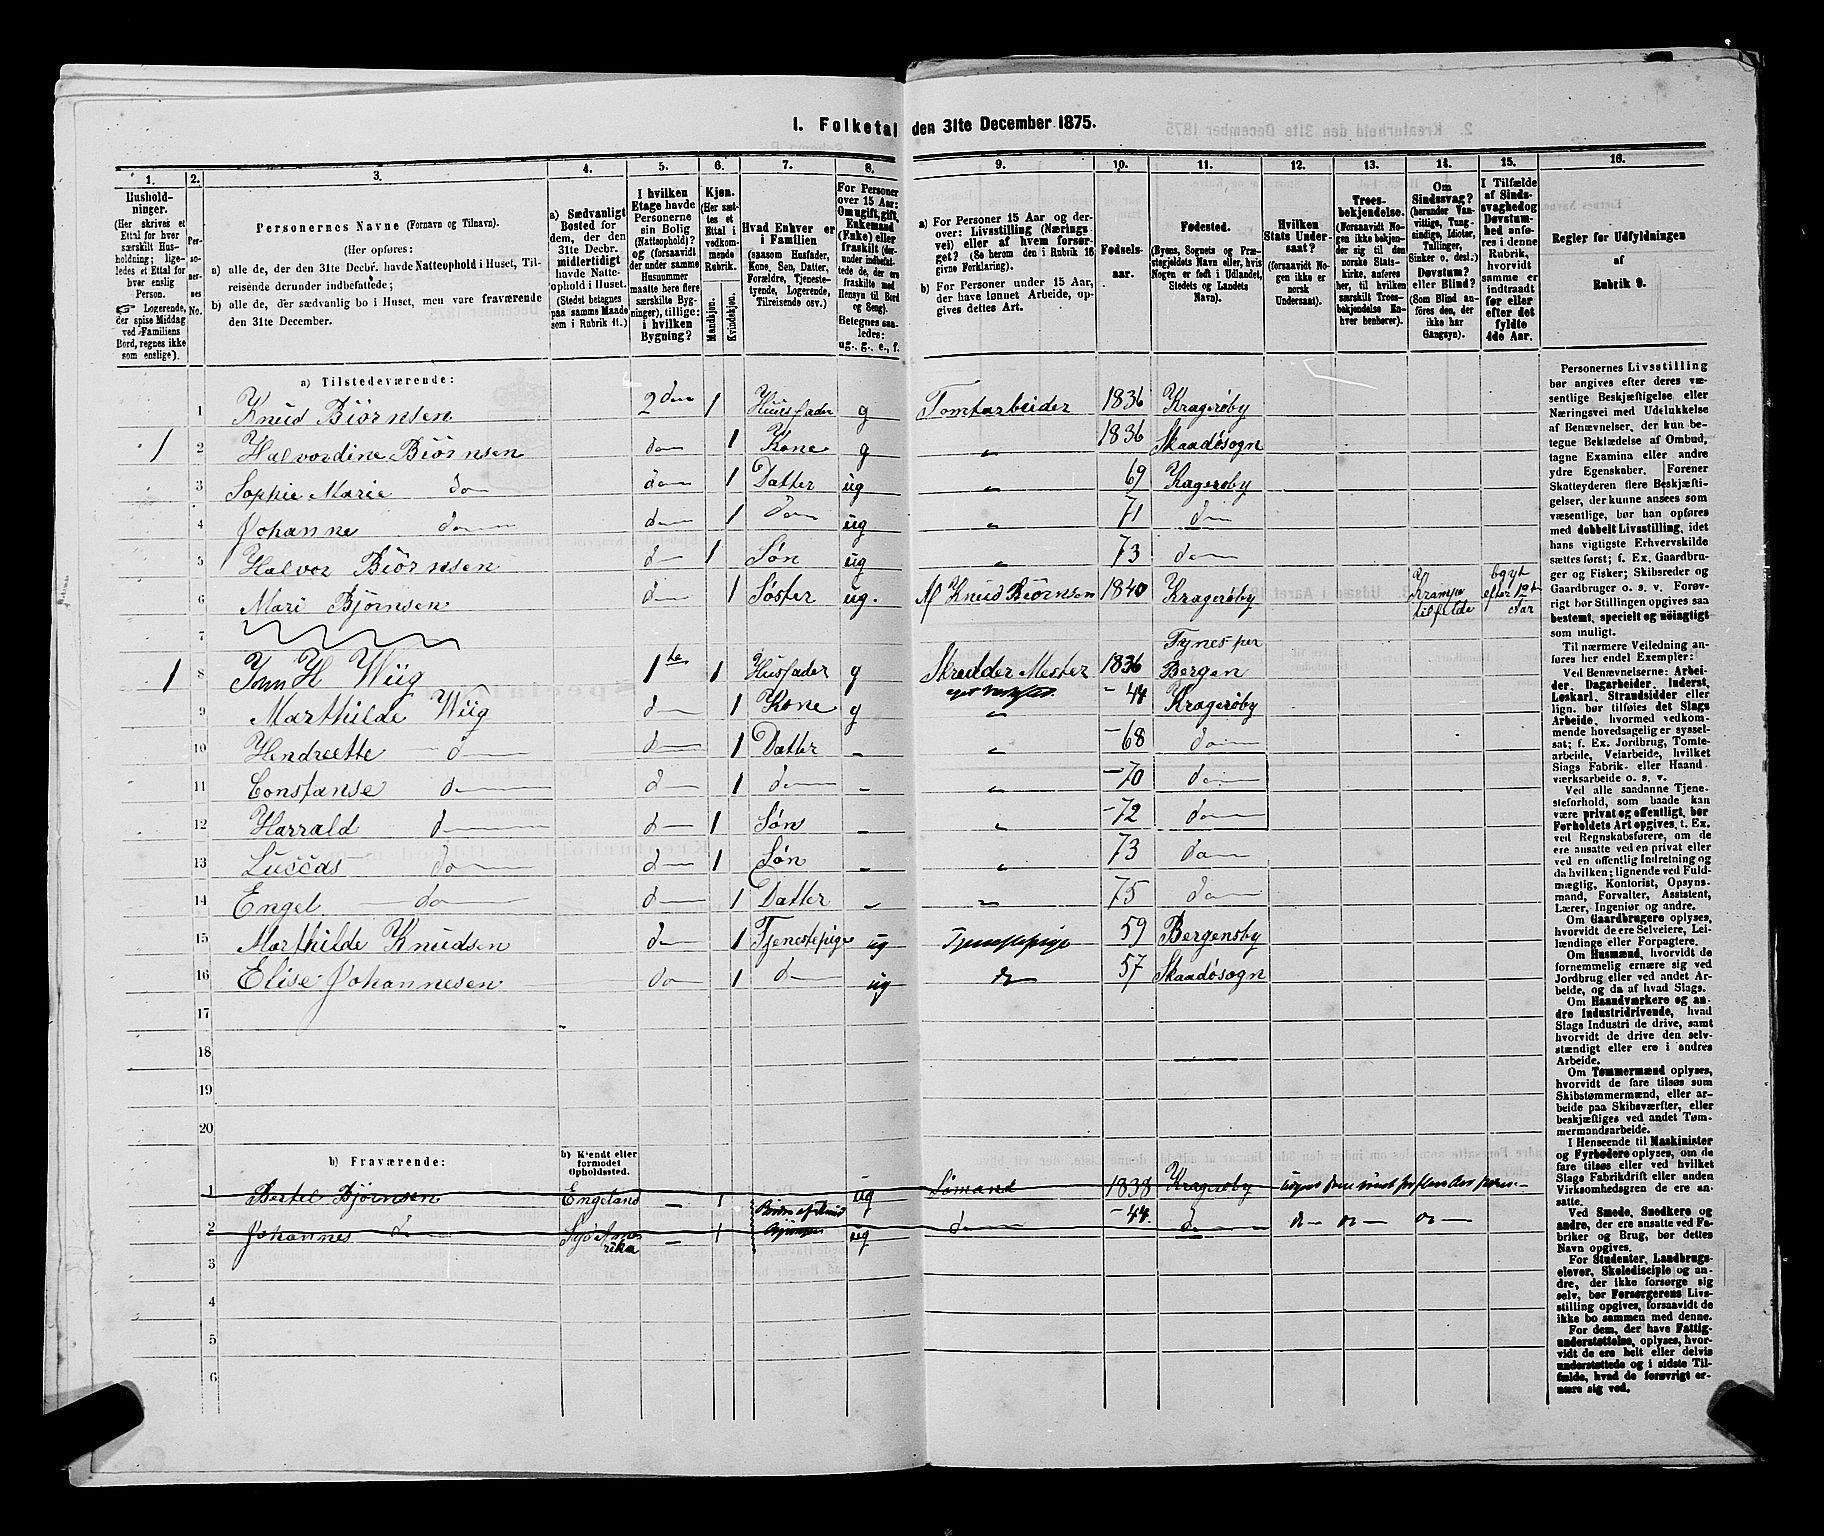 1. Folketal den 31te December 1875.
1. 2. 3. 4. 5. 6. 7. 8. 9. 10. 11. 12. 13. 14. 15. 16.
Hushold-
ninger.
(Her skrives et
Ettal for hver
særskilt Hus-
holdning; lige-
ledes et Ettal for
hver enslig
Person.
Logerende,
der spise Middag
ved Familiens
Bord, regnes ikke
som enslige).
Per-
so-
ner-
nes
No.
Personernes Navne (Fornavn og Tilnavn).
(Her opføres:
a) alle de, der den 31te Decbr. havde Natteophold i Huset, Til-
reisende derunder indbefattede;
b) alle de, der sædvanlig bo i Huset, men vare fraværende
den 31te December.
a) Sædvanligt
Bosted for
dem, der den
31te Decbr.
midlertidigt
havde Natte-
ophold i Huset.
(Stedet betegnes
paa samme Maade
som i Rubrik 11.)
I hvilken
Etage havde
Personerne
sin Bolig
(Natteophold)?
og (forsaavidt
der under samme
Husnummer
maatte høre flere
særskilte Byg-
ninger), tillige:
i hvilken
Bygning?
Kjøn.
(Her sæt-
tes et
Ettal i
vedkom-
mende
Rubrik.
Mandkjøn.
Kvindekjøn.
Hvad Enhver er
i Familien
(saasom Husfader,
Kone, Søn, Datter,
Forældre, Tjeneste-
tyende, Logerende,
Tilreisende osv.)
For Personer
over 15 Aar:
Om ugift, gift,
Enkemand
(Enke) eller
fraskilt (der-
under indbefat-
tede de, der ere
fraskilte med
Hensyn til Bord
og Seng).
Betegnes saa-
ledes:
ug., g., e., f.
a) For Personer 15 Aar og der-
over: Livsstilling (Nærings-
vei) eller af hvem forsør-
get? (Se herom den i Rubrik 16
givne Forklaring).
b) For Personer under 15 Aar,
der have lønnet Arbeide, op-
gives dettes Art.
Fødsels-
aar.
Fødested.
(Byens, Sognets og Præ-
stegjeldets Navn eller, hvis
Nogen er født i Udlandet,
Stedets og Landets
Navn).
Hvilken
Stats Under-
saat?
(forsaavidt No-
gen ikke er
norsk
Undersaat).
Troes-
bekjendelse.
(Forsaavidt No-
gen ikke bekjen-
der sig til den
norske Stats-
kirke, anføres
her, til hvilket
særskilt Troes-
bekjendelse En-
hver henhører).
Om
Sindssvag?
(herunder Van-
vittige, Tung-
sindige, Idioter,
Tullinger,
Sinker o. desl.)
Døvstum?
eller Blind?
(Som Blind an-
føres den, der
ikke har
Gangsyn).
I Tilfælde
af Sinds-
svaghed og
Døvstum-
hed anfø-
res i denne
Rubrik,
hvorvidt
samme er
indtraadt
før eller
efter det
fyldte
4de Aar.
Regler for Udfyldningen
af
Rubrik 9.
a) Tilstedeværende:
1 Knud Biörnsen 2den 1 Huusfader g Tomtarbeider 1836 Kragerøby
1 2 Halvordine Biörnsen do 1 Kone g " 1836 Skaadøsogn
3 Sophie Marie do do 1 Datter ug " 69 Kagerøby
4 Johanne do do 1 do ug " 71 do
5 Halvor Biörnsen do 1 Søn ug " 73 do
6 Mari Bjørnsen do 1 Søster ug. Knud Biørnsen 1840 Kragerøby Krampe tilfelde efter 12te Aar
7
1 8 H Wiig 1te 1 Husfader g Skrædder Mester 1836 Bergen
9 Marthilde Wiig do 1 Kone g " -44 Kragerøby
10 Hendreette do do 1 Datter - " -68 do
11 Constanse do do 1 do - " -70 do
12 Harrald do do 1 Søn - " -72 do
13 Luccas do do 1 Søn - " 73 do
14 Engel do do 1 Datter - " 75 do
15 Marthilde Knudsen do 1 Tjenestepige ug Tjenestepige 59 Bergensby
16 Elise Johannesen do 1 do ug do 57 Skaadøsogn
17
18
19
20
b) Fraværende:
b) Kjendt eller
formodet
Opholdssted.
1 Bertel Bjørnsen Engeland - 1 ug Sømand 1838 Kragerøby
2 Johannes do Syd Amerika - 1 ug do -44. do do do do
3
4
5
6
Personernes Livsstilling
bør angives efter deres væ-
sentlige Beskjæftigelse eller
Næringsvei med Udelukkelse
af Benævnelser, der kun be-
tegne Beklædelse af Ombud,
tagne Examina eller andre
ydre Egenskaber. Forener
Skatteyderen flere Beskjæfti-
gelser, der kunne ansees som
væsentlige, bør han opføres
med dobbelt Livsstilling, idet
hans vigtigste Erhvervskilde
sættes først; f. Ex. Gaardbru-
ger og Fisker; Skibsreder og
Gaardbruger o. s. v. Forøv-
rigt bør Stillingen opgives saa
bestemt, specielt og nöiagtigt
som muligt.
Til nærmere Veiledning an-
føres her endel Exempler:
Ved Benævnelserne: Arbei-
der, Dagarbeider, Inderst,
Løskarl, Strandsidder eller
lign. bør tilføies det Slags
Arbeide, hvormed vedkom-
mende hovedsagelig er syssel-
sat; f. Ex. Jordbrug, Tomte-
arbeide, Veiarbeide, hvilket
Slags Fabrik- eller Haand-
værksarbeide o. s. v.
Ved alle saadanne Tjene-
steforhold, som baade kan
være privat og offentligt, bør
Forholdets Art opgives, t. Ex.
ved Regnskabsførere, om de
ere ansatte ved en privat eller
ved en offentlig Indretning og
da hvilken; lignende ved Fuld-
mægtig, Kontorist, Opsyns-
mand, Forvalter, Assistent,
Lærer, Ingeniør og andre.
Om Gaardbrugere oplyses,
hvorvidt de ere Selveiere, Lei-
lændinge eller Forpagtere.
Om Husmænd, hvorvidt de
fornemmelig ernære sig ved
Jordbrug eller ved andet Ar-
beide, og da af hvad Slags.
Om Haandværkere og an-
dre Industridrivende, hvad
Slags Industri de drive, samt
hvorvidt de drive den selv-
stændigt eller ere i andres
Arbeide.
Om Tømmermænd oplyses,
hvorvidt de fare tilsøs som
Skibstømmermænd, eller ar-
beide paa Skibsværfter, eller
beskjæftiges ved andet Tøm-
mermandsarbeide.
I Henseende til Maskinister
og Fyrbødere oplyses, om de
fare tilsøs eller ved hvilket
Slags Fabrikdrift eller anden
Virksomhedsgren de ere an-
satte.
Ved Smede, Snedkere og
andre, der ere ansatte ved Fa-
briker og Brug, bør dettes
Navn opgives.
For Studenter, Landbrugs-
elever, Skoledisciple og an-
dre, der ikke forsørge sig
selv, bør Forsørgerens Livs-
stilling opgives, forsaavidt de
ikke bo sammen med denne.
For dem, der have Fattig-
understøttelse, oplyses, hvor-
vidt de ere helt eller delvis
understøttede og i sidste Til-
fælde, hvad de forøvrigt er-
nære sig ved.